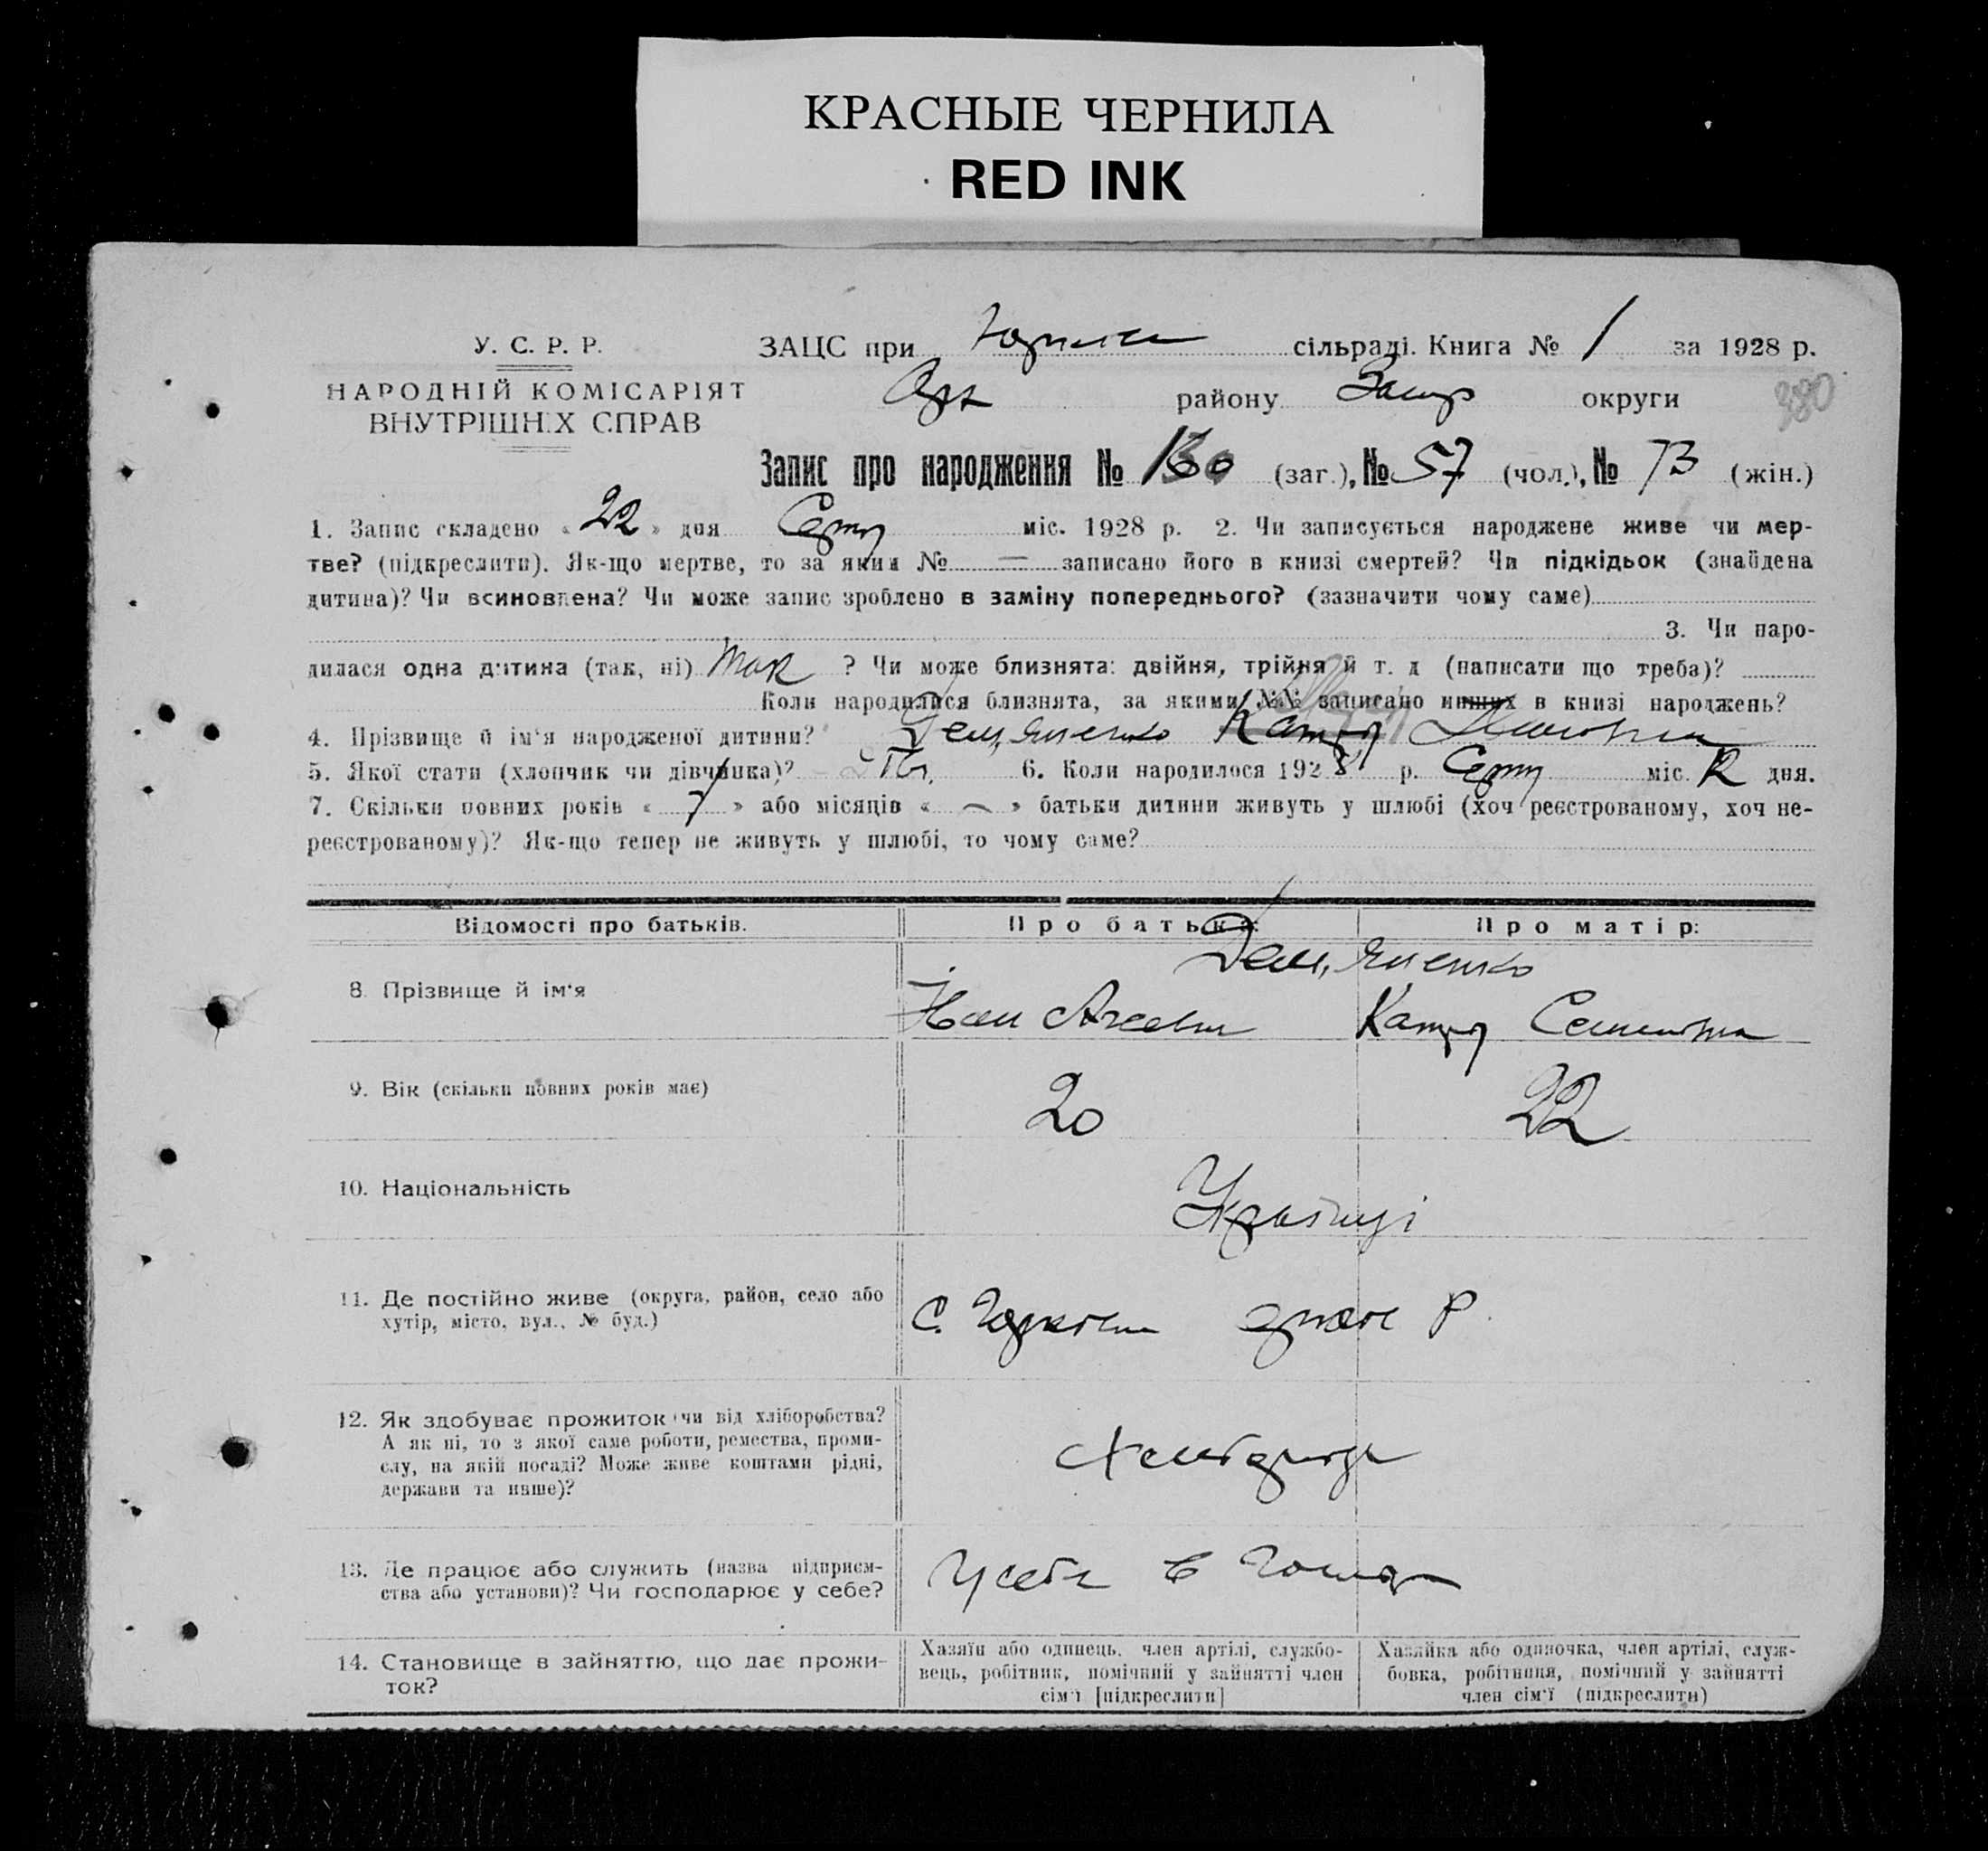 КРАСНЫЕ ЧЕРНИЛА
RED INK
У. С. Р. Р.
НАРОДНІЙ КОМІСАРІЯТ
ВНУТРІШНІХ СПРАВ
ЗАЦС при сільраді. Книга № 1 за 1928 р.
району округи 380
Запис про народження № (заг.), № 57 (чол.), № 73 (жін.)
1. Запис складено « 22 » дня міс. 1928 р. 2. Чи записується народжене живе чи мер-
тве? (підкреслити). Як-що мертве, то за яким № = записано його в книзі смертей? Чи підкідьок (знайдена
дитина)? Чи всиновлена? Чи може запис зроблено в заміну попереднього? (зазначити чому саме)
3. Чи наро-
дилася одна дитина (так, ні) так ? Чи може близнята: двійня, трійня й т. д (написати що треба)?
Коли народилися близнята, за якими №№ записано инших в книзі народжень?
4. Прізвище й ім'я народженої дитини? Дем,яненко
5. Якої стати (хлопчик чи дівчинка)? 6. Коли народилося 1928 р. міс. дня.
7. Скільки повних років « » або місяців « — » батьки дитини живуть у шлюбі (хоч реєстрованому, хоч не-
реєстрованому)? Як-що тепер не живуть у шлюбі, то чому саме?
Відомості про батьків. Про батька: Про матір:
Дем,яненко
8. Прізвище й ім'я Катря Семеновна
9. Вік (скільки повних років має) 20 22
10. Національність Українці
11. Де постійно живе (округа, район, село або
хутір, місто, вул., № буд.) С. Р.
12. Як здобуває прожиток чи від хліборобства?
А як ні, то з якої саме роботи, ремества, проми-
слу, на якій посаді? Може живе коштами рідні,
держави та инше)?
13. Де працює або служить (назва підприєм-
ства або установи)? Чи господарює у себе? У себе в
14. Становище в зайняттю, що дає прожи-
ток?
Хазяїн або одинець, член артілі, службо-
вець, робітник, помічний у зайнятті член
сім'ї [підкреслити]
Хазяйка або одиночка, член артілі, служ-
бовка, робітниця, помічний у зайнятті
член сім'ї (підкреслити)